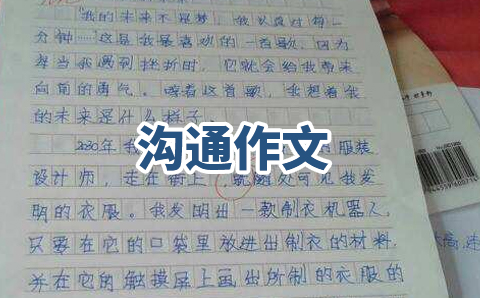 “我的未来不是梦，我认真过每一
分钟……”这是我最喜欢的一首歌，因为
每当我遇到挫折时，它就会给我带来
向前的勇气。听着这首歌，我想着我
的未来是什么样子
2030年我
的服装
沟通作文
设计师，走在街上，就随处可见我发
明的衣服。我发明出一款制衣机器人，
只要在它的口袋里放进出制衣的材料，
并在它的触摸屏上画出所制的衣服的